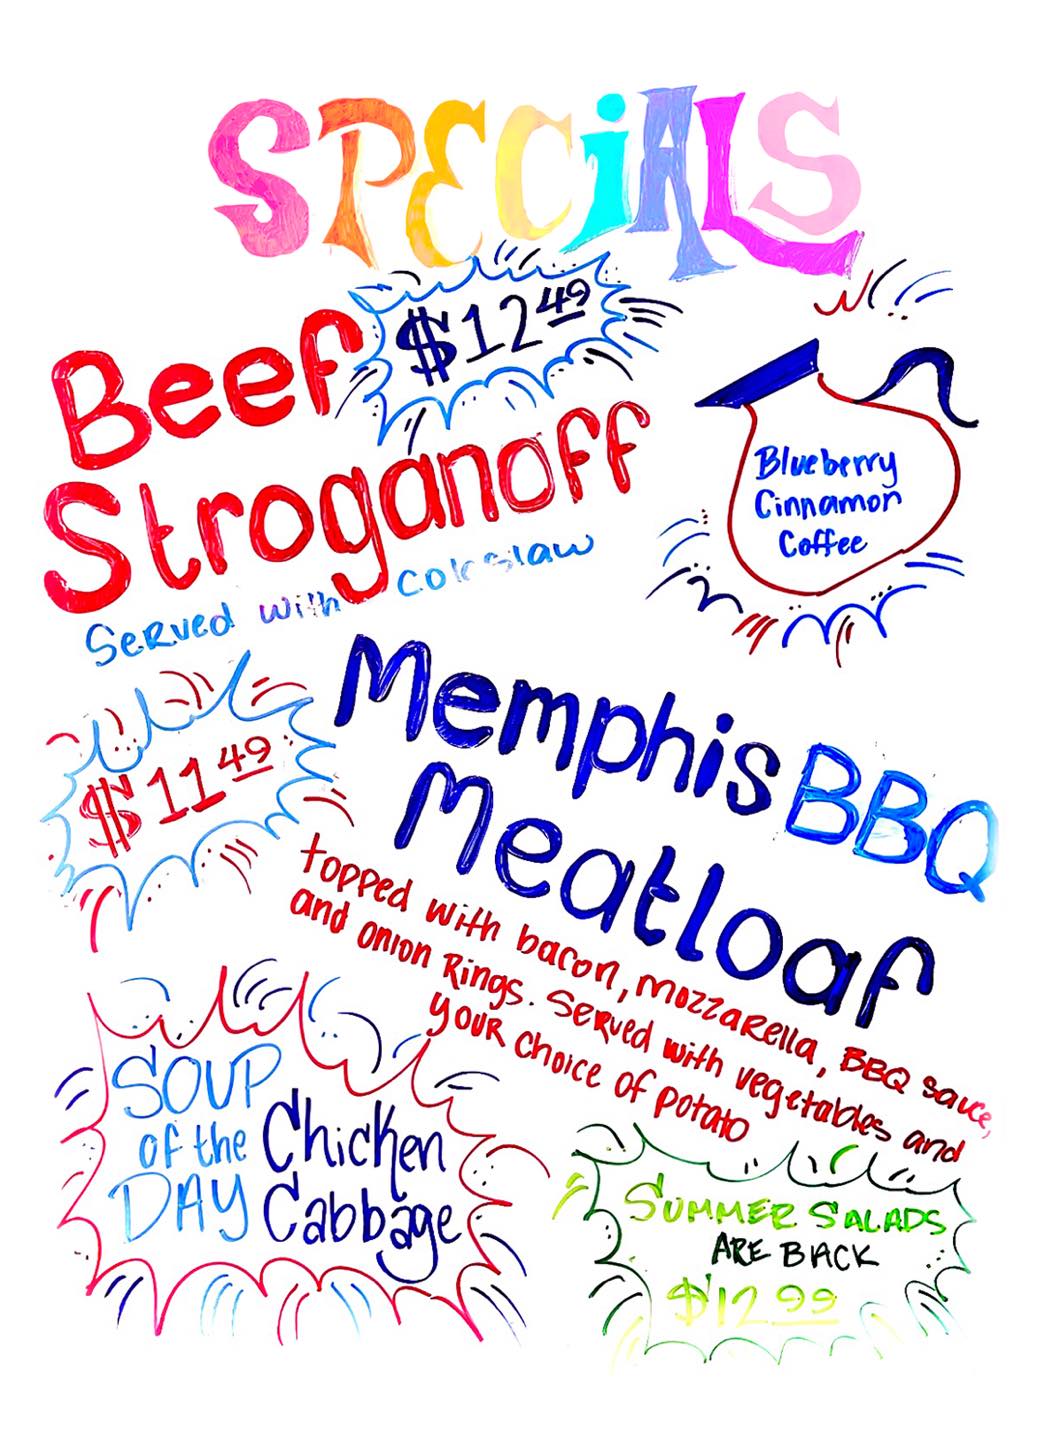 SPECiALS
$12.49
Beef
Stroganoff
Served with coleslaw
Blueberry
Cinnamon
Coffee
$11.49
Memphis BBQ
Meatloaf
topped with bacon, mozzarella, BBQ sauce,
and onion Rings. Served with vegetables and
your choice of potato
SOUP
of the
DAY
Chicken
Cabbage
SUMMER SALADS
ARE BACK
$12.99